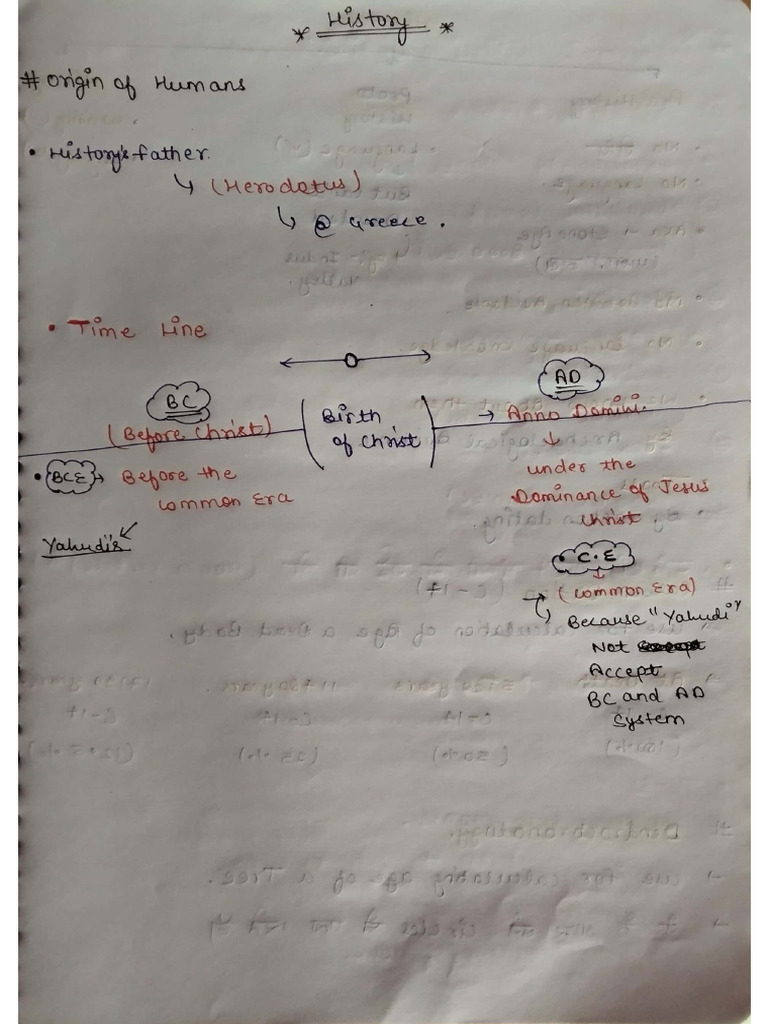 * History *
# Origin of Humans
• History's father.
↳ (Herodatus)
↳ @ Greece.
• Time Line
BC
(Before Christ)
(Birth of Christ)
AD
→ Anno Domini.
↓
under the
Dominance of Jesus
Christ
• BCE → Before the
common Era
Yahudi's
• C.E
↓
→ (common Era)
↳ Because "Yahudi"
Not
Accept
BC and AD
System